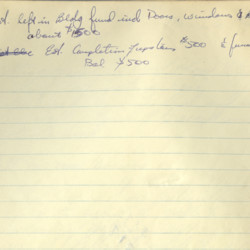 left in Bldg fund incl Doors, windows &
about $1500
Est. Completion $500 &
Bal $500